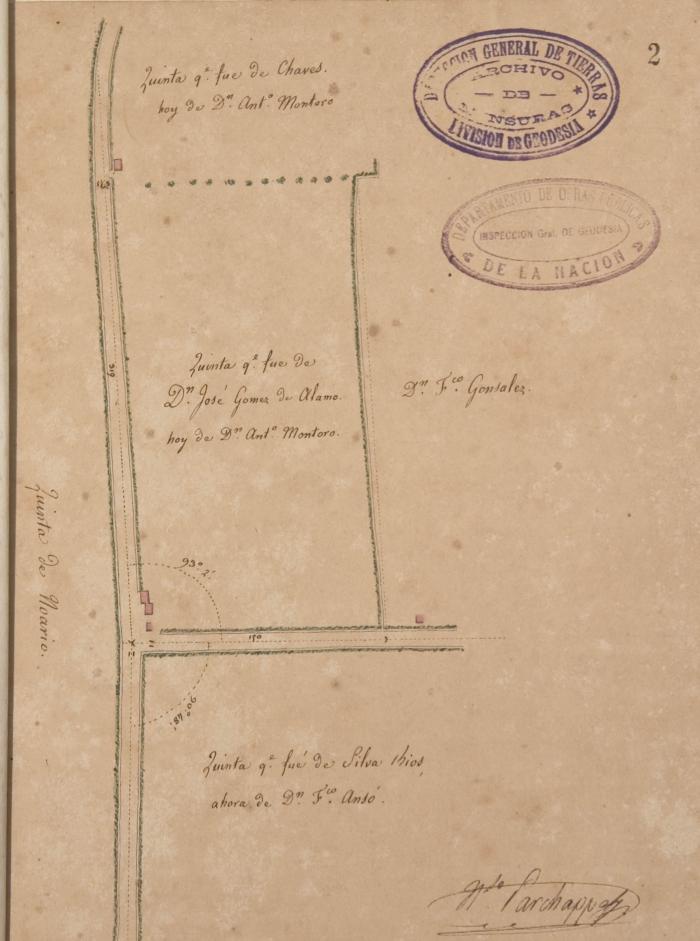 2
DIRECCION GENERAL DE TIERRAS
ARCHIVO
— DE —
MENSURAS
DIVISION DE GEODESIA
DEPARTAMENTO DE OBRAS PUBLICAS
INSPECCION Gral. DE GEODESIA
DE LA NACION
Quinta q.e fue de Chaves.
hoy de Dn Anto Montoro
Quinta q.e fue de
Dn. José Gomez de Alamo.
hoy de Dn Anto Montoro.
Dn. Fco. Gonsalez.
319
Quinta de
93° 2'
150
90° 48'
Quinta q.e fué de Silva Rios,
ahora de Dn. Fco. Ansó.
Parchappe